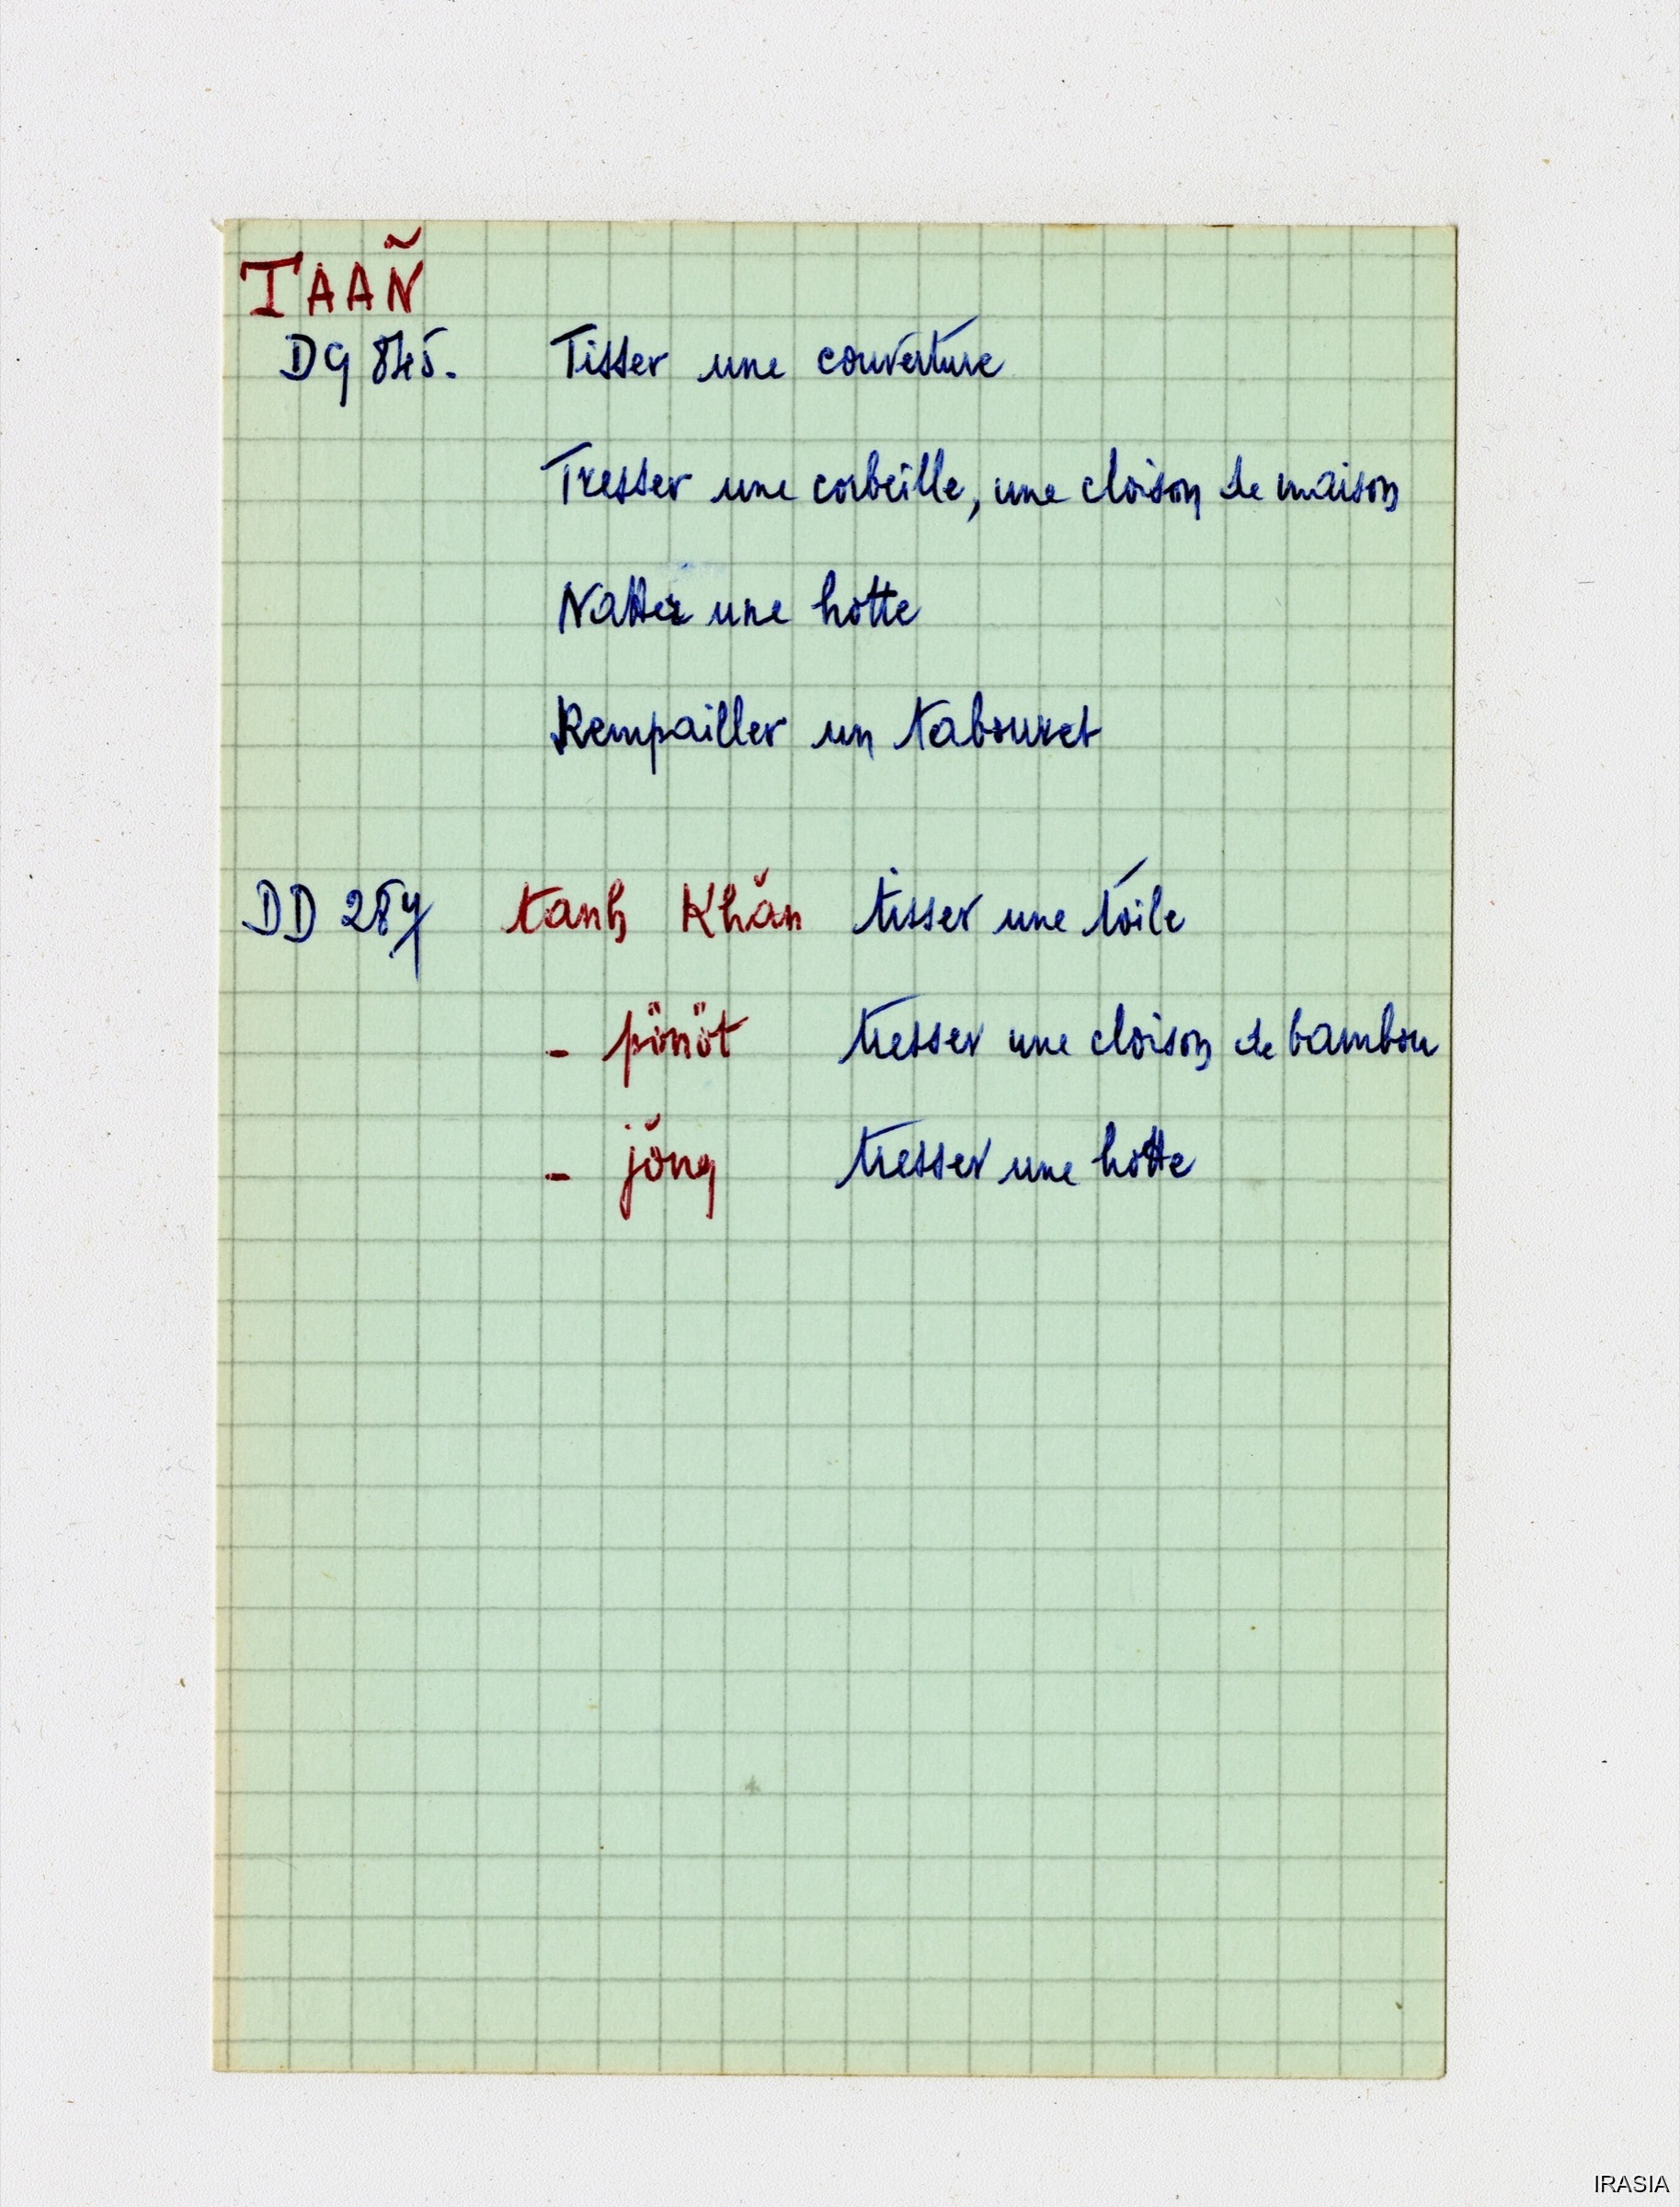 TAAÑ
DG 845. Tisser une couverture
Tresser une corbeille, une cloison de maison
Natter une hotte
Rempailler un tabouret
DD 284 tanh Khăn tisser une toile
- pönöt tresser une cloison de bambou
- jŏng tresser une hotte
IRASIA